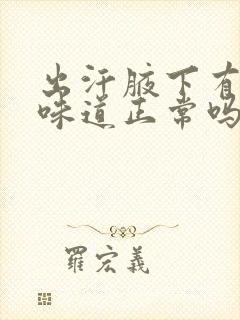 出汗腋下有
味道正常吗
羅宏義